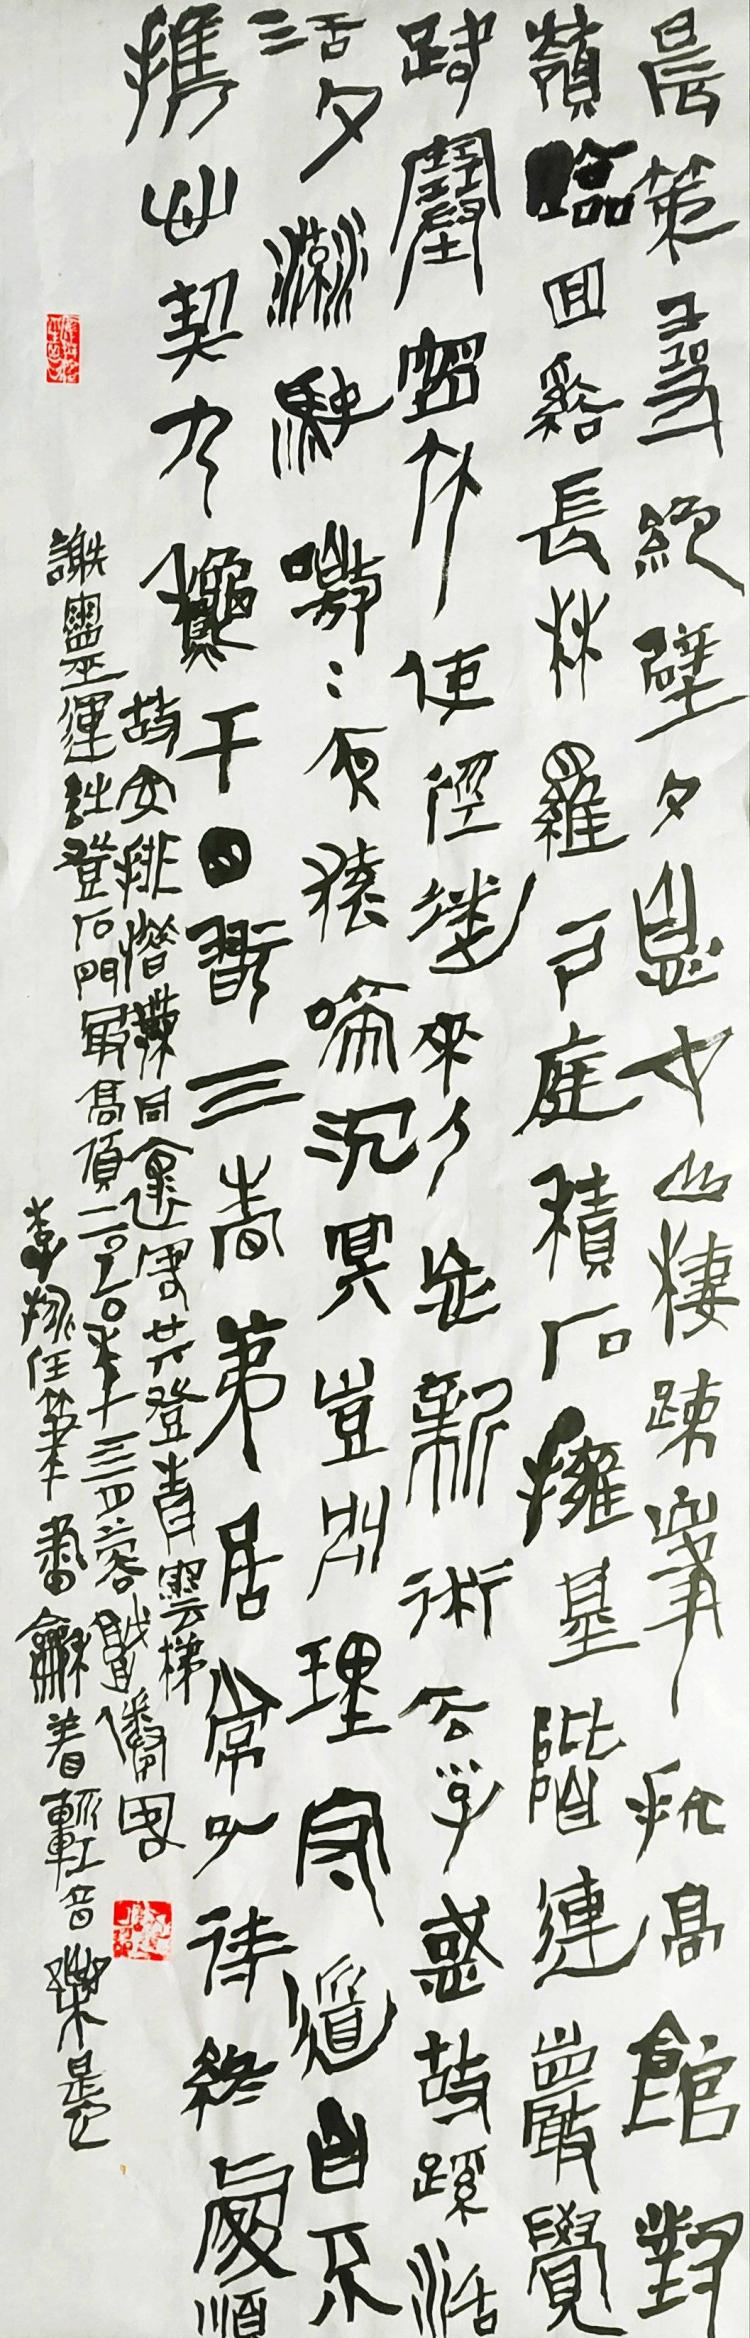 晨策尋絕壁夕息在山棲疎峯抗高館對
嶺臨回谿長林羅戶庭積石擁基階連巖覺
路塞密竹使徑迷來人忘新術去子惑故蹊活
活夕流駛噭〻夜猿啼沉冥豈別理守道自不
攜心契九秋干目翫三春荑居常以待終處順
故安排惜無同懷客共登青雲梯
謝靈運詩登石門最高頂二〇二〇年十三四
李任筆書龢着輕音樂是也